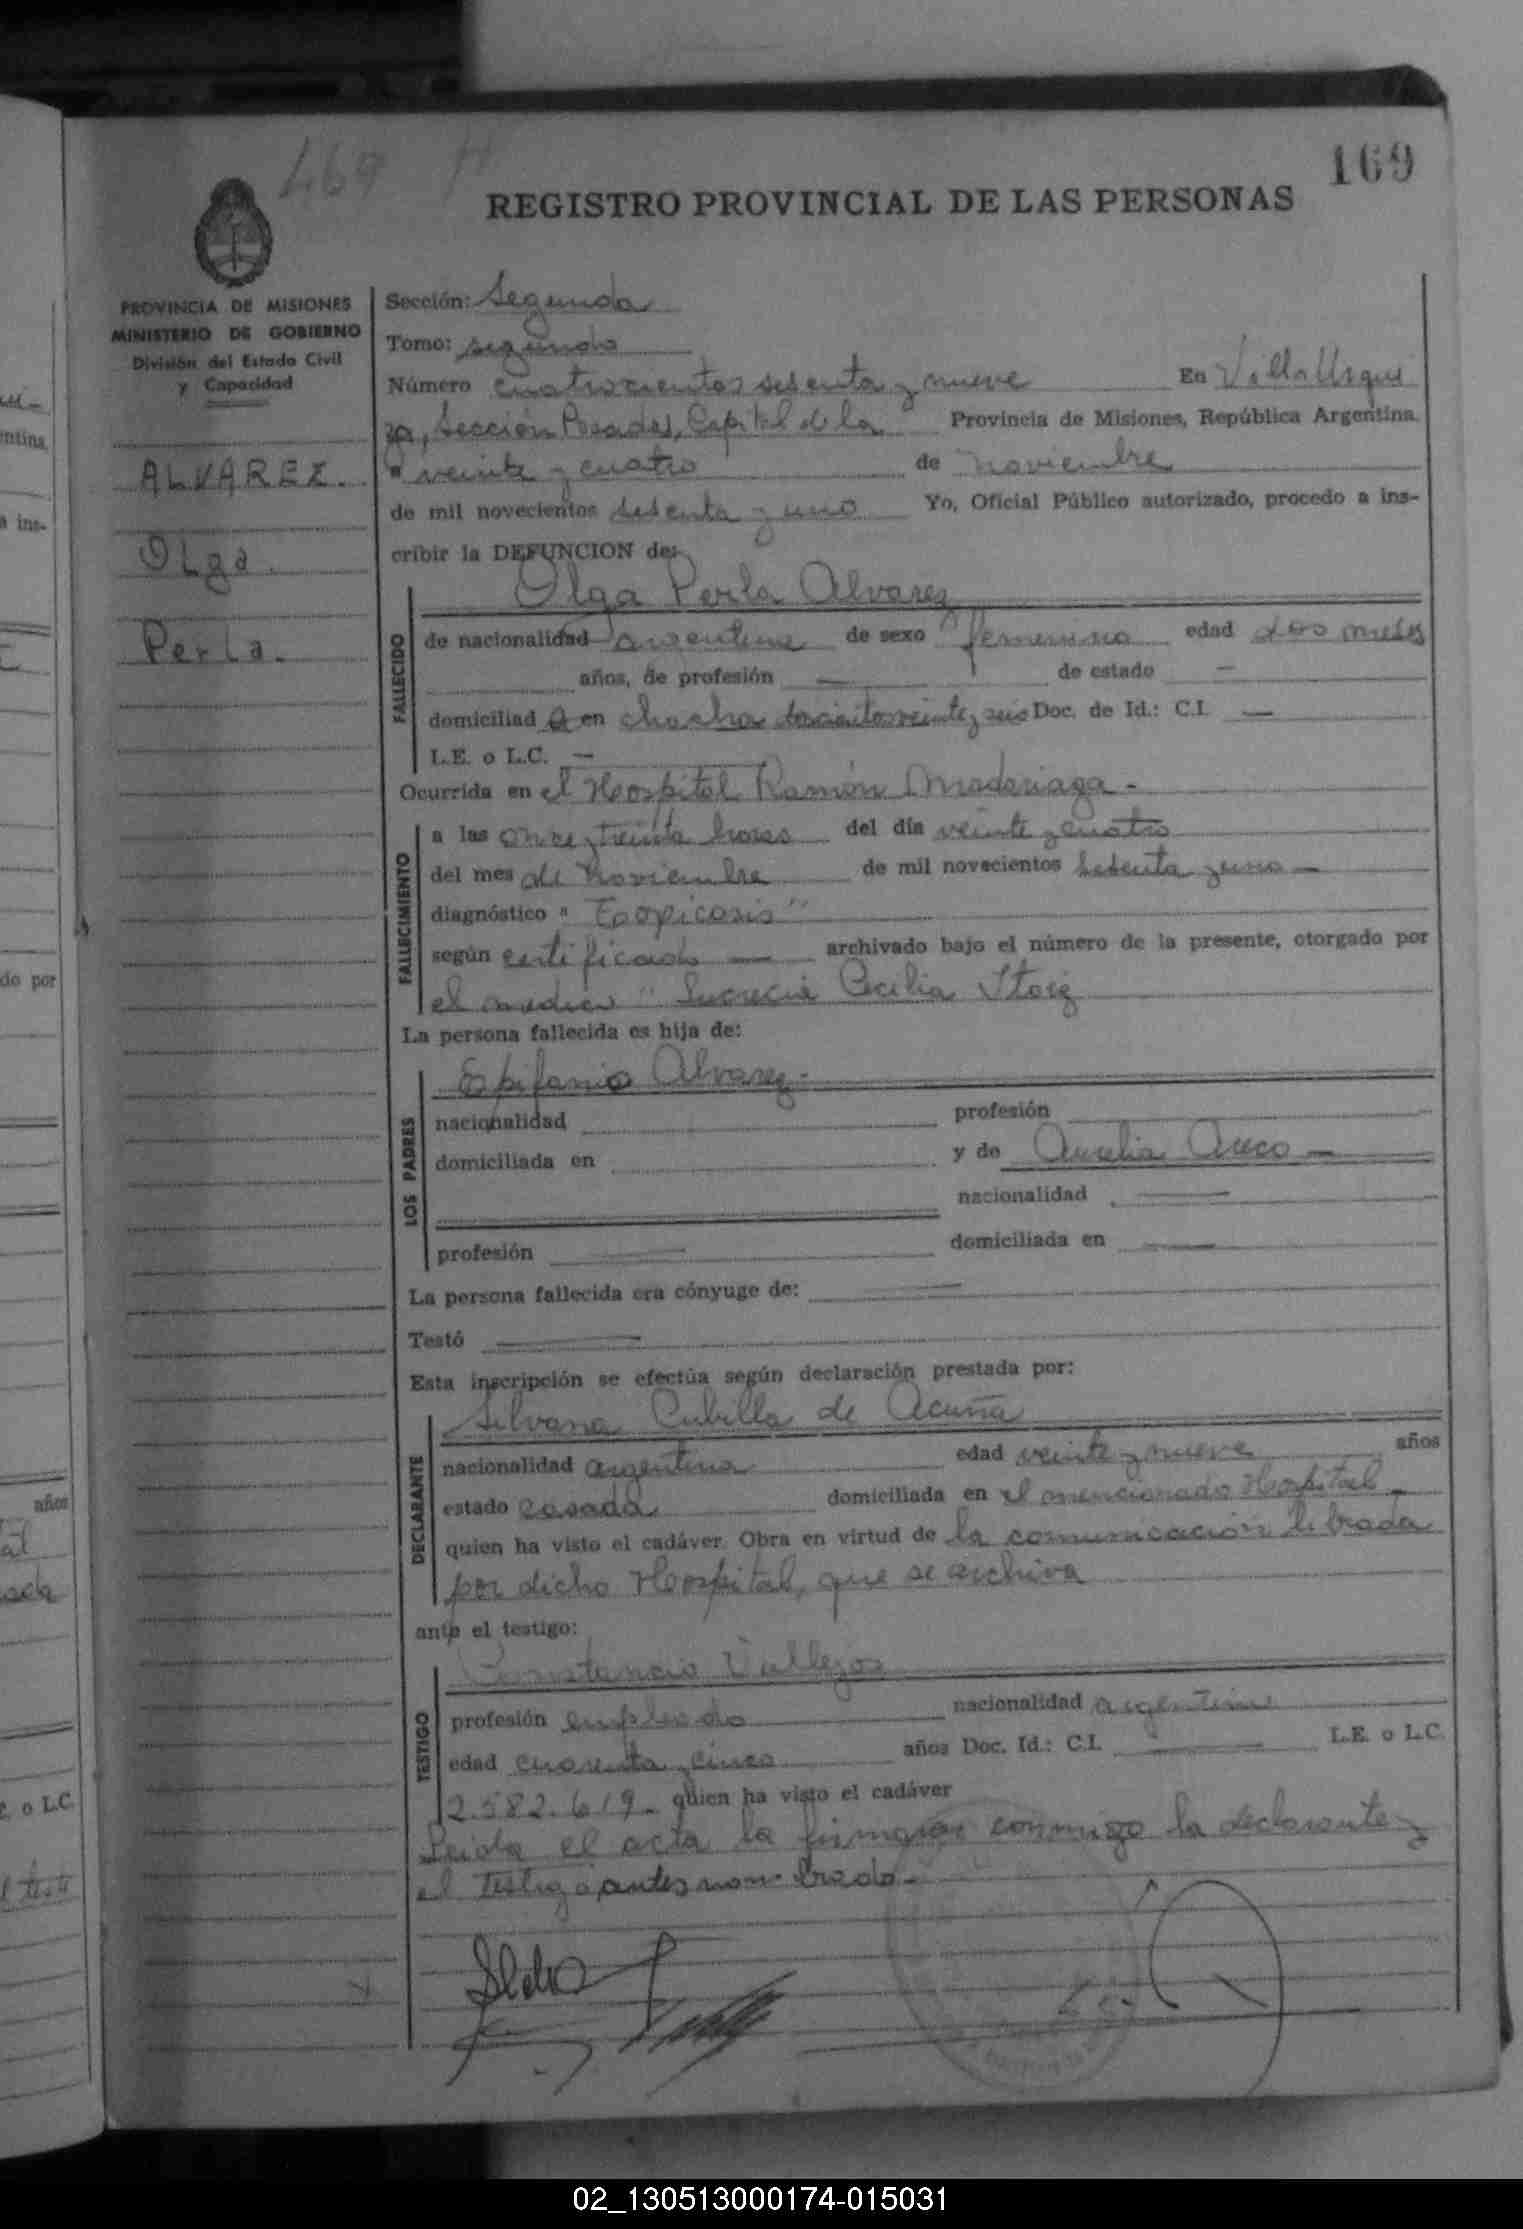 469 H
169
REGISTRO PROVINCIAL DE LAS PERSONAS
PROVINCIA DE MISIONES
MINISTERIO DE GOBIERNO
División del Estado Civil
y Capacidad
ALVAREZ.
Olga.
Perla.
Sección: Segunda
Tomo: segundo
Número cuatrocientos sesenta y nueve En Villa Urqui
za, Sección Posadas, Capital de la Provincia de Misiones, República Argentina.
a veinte y cuatro de noviembre
de mil novecientos sesenta y uno Yo, Oficial Público autorizado, procedo a ins-
cribir la DEFUNCION de:
Olga Perla Alvarez
FALLECIDO
de nacionalidad argentina de sexo femenino edad dos meses
años, de profesión — de estado —
domiciliad a en chacha doscientos veinte y seis Doc. de Id.: C.I. —
L.E. o L.C. —
Ocurrida en el Hospital Ramón Madariaga -
FALLECIMIENTO
a las once y treinta horas del día veinte y cuatro
del mes de noviembre de mil novecientos sesenta y uno —
diagnóstico "
según certificado — archivado bajo el número de la presente, otorgado por
el medico " Lucrecia Cecilia
La persona fallecida es hija de:
LOS PADRES
Epifanio Alvarez -
nacionalidad profesión
domiciliada en y de Aurelia Areco —
nacionalidad —
profesión — domiciliada en —
La persona fallecida era cónyuge de: —
Testó —
Esta inscripción se efectúa según declaración prestada por:
DECLARANTE
Silvana Cubilla de Acuña
nacionalidad argentina edad veinte y nueve años
estado casada domiciliada en el mencionado Hospital -
quien ha visto el cadáver. Obra en virtud de la comunicación librada
por dicho Hospital, que se archiva
ante el testigo:
TESTIGO
Constancio Vallejos
profesión empleado nacionalidad argentina
edad cuarenta y cinco años Doc. Id.: C.I. — L.E. o L.C.
2.582.619 - quien ha visto el cadáver
Leida el acta la firmaron conmigo la declarante y
el testigo antes nombrado -
02_130513000174-015031